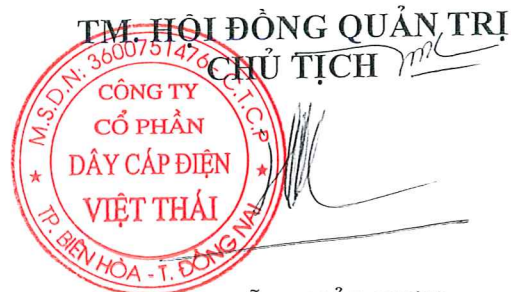 TM. HỘI ĐỒNG QUẢN TRỊ
CHỦ TỊCH
M.S.D.N: 3600751476 C.T.C.P
CÔNG TY
CỔ PHẦN
DÂY CÁP ĐIỆN
VIỆT THÁI
TP. BIÊN HÒA - T. ĐỒNG NAI